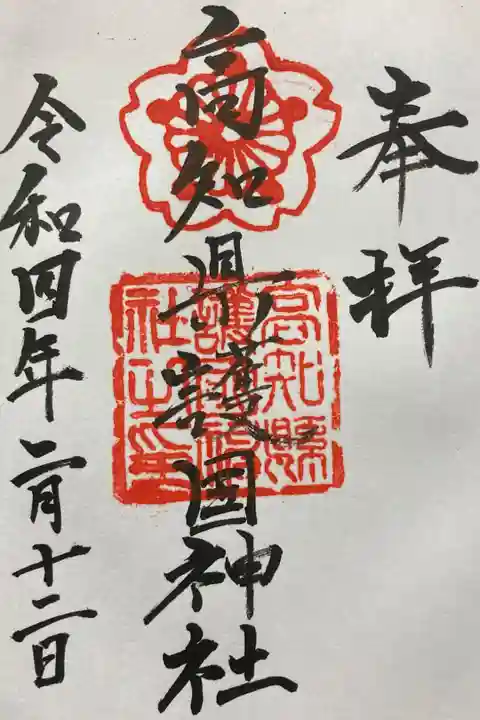 奉拝
高知県護国神社
高知縣
護國神
社之印
令和四年二月十二日